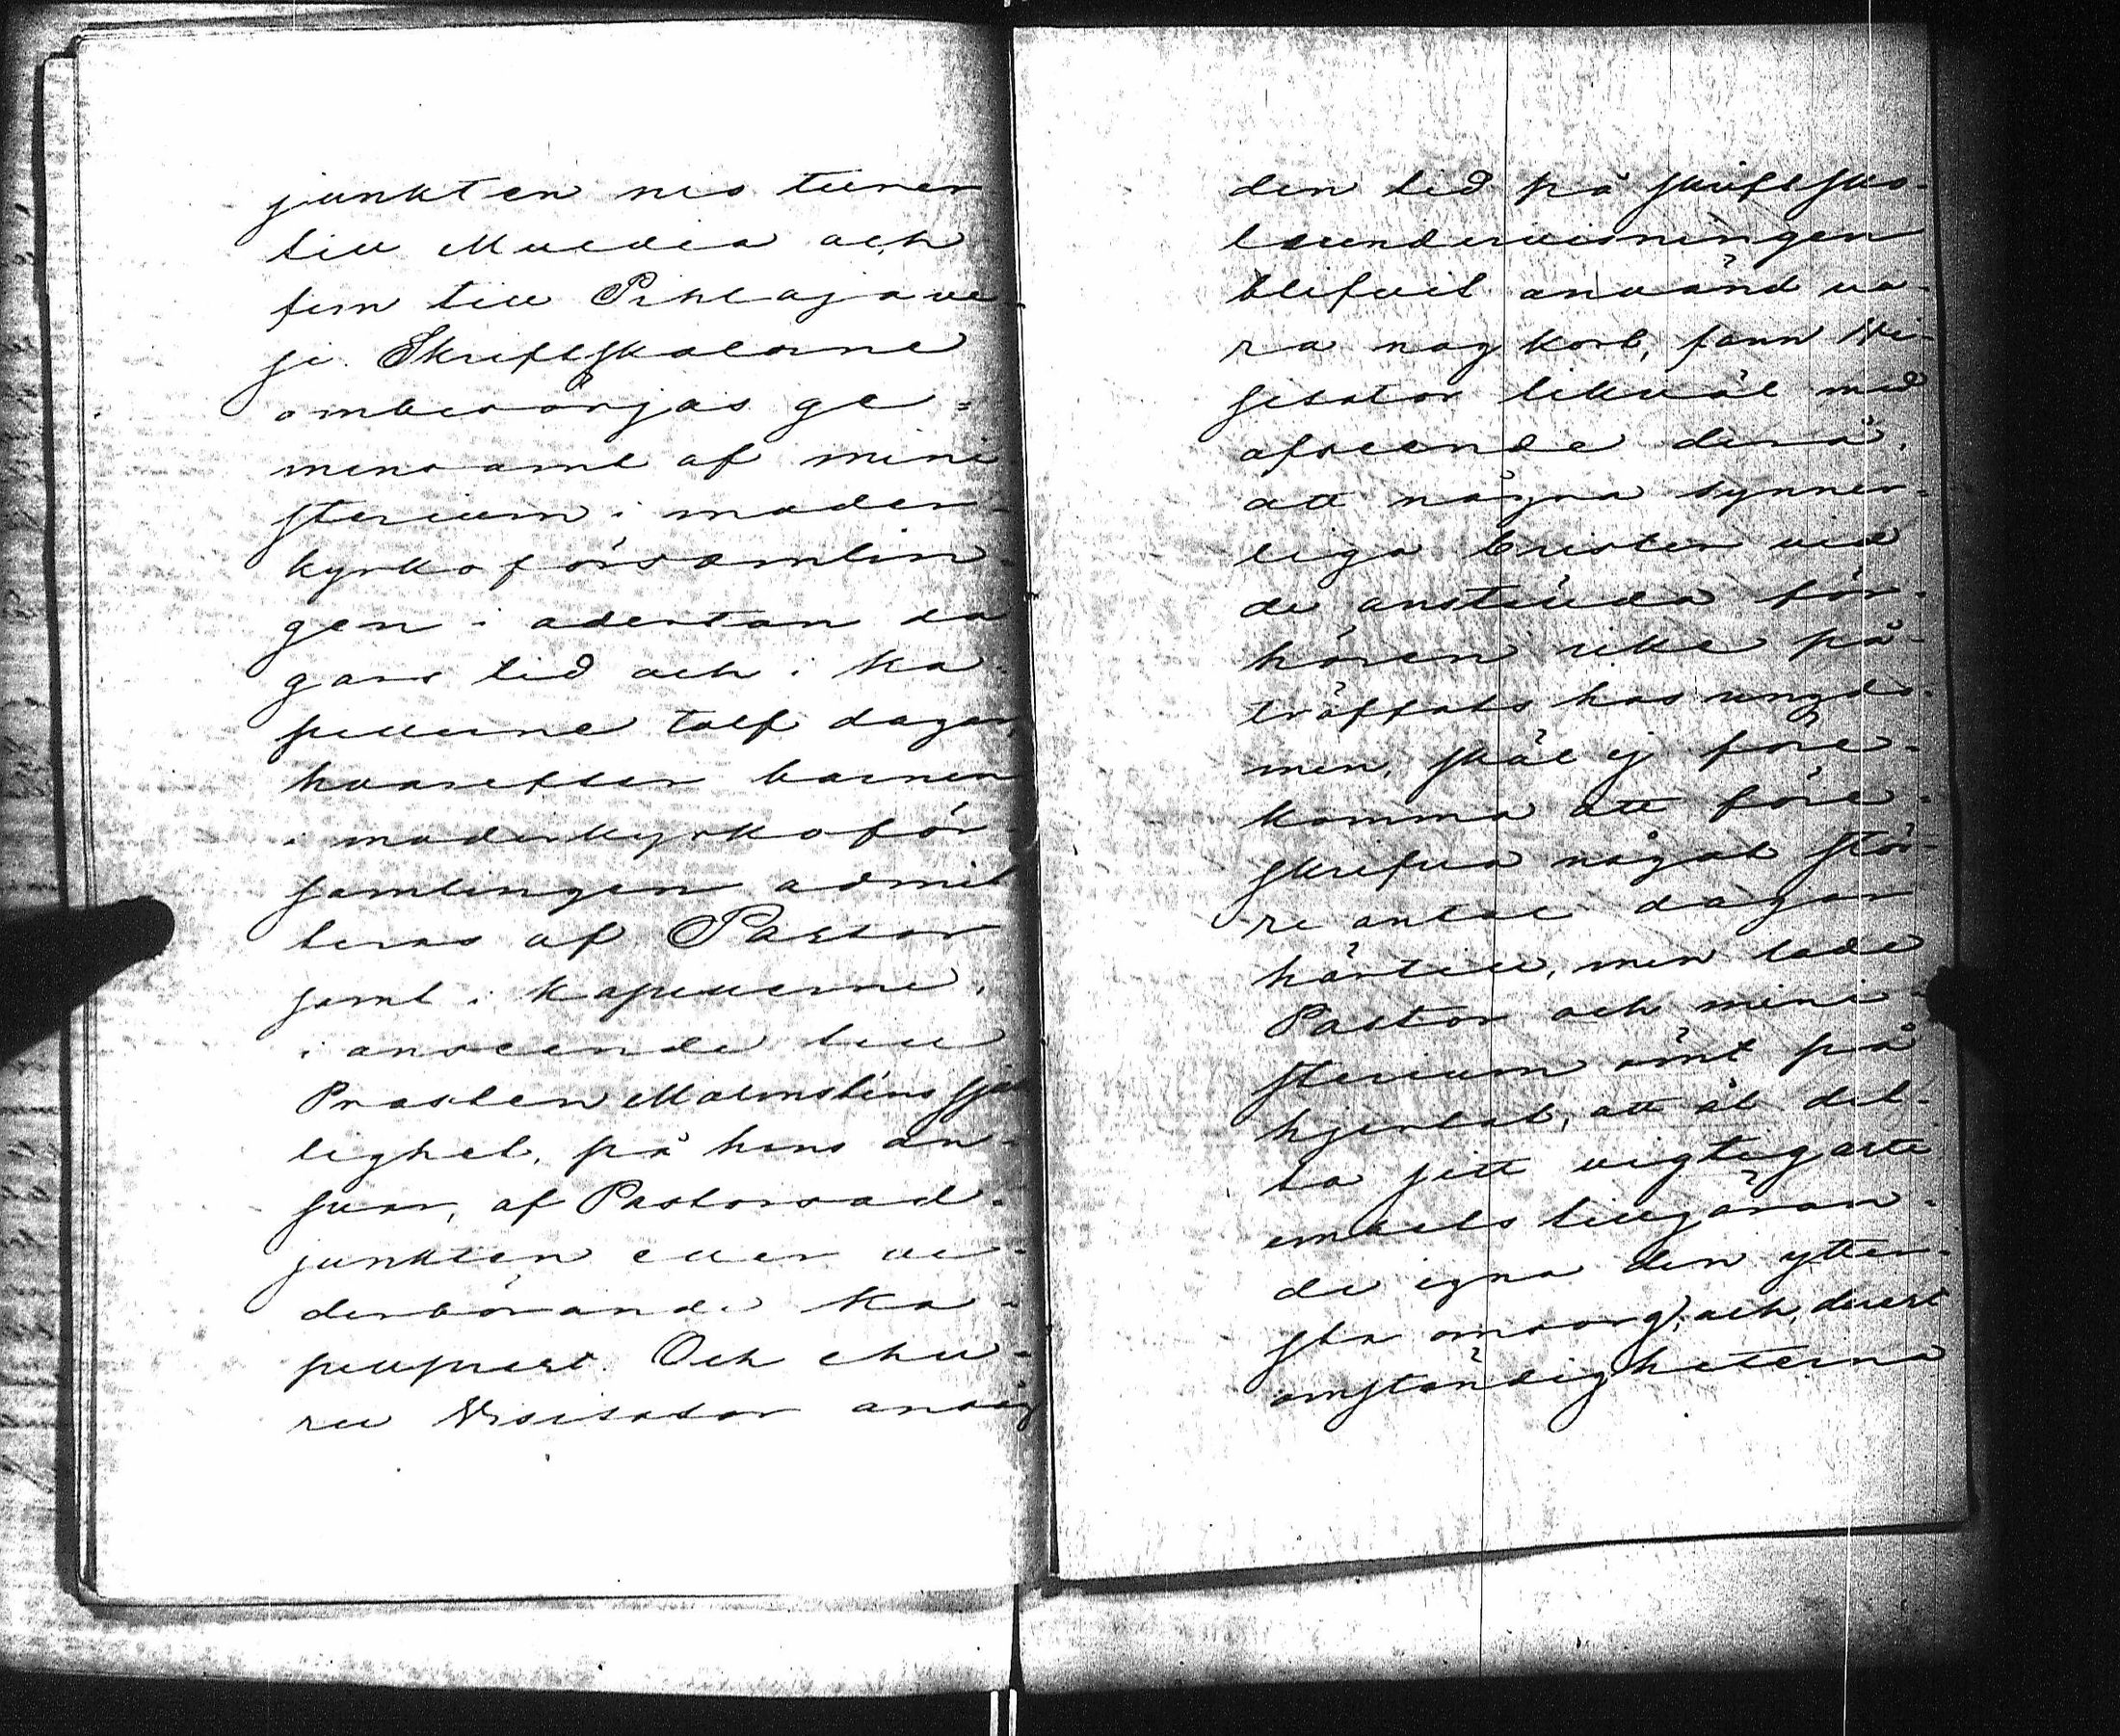 junkten nio turer
till Multia och
fem till Pihlajave-
si. Skriftskolorne
ombesörjas ge-
mensamt af mini-
sterium i moder-
kyrkoförsamlin-
gen i aderton da-
gars tid och i ka-
pellerne tolf dagar,
hvarefter barnen
i moderkyrkoför-
samlingen admit-
teras af Pastor
samt i kapellerne,
i anseende till
Prosten Malmsténs sjuk-
lighet, på hans an-
svar, af Pastorsad-
junkten eller ve-
derbörande ka-
pellprest. Och ehu-
ru Visitator ansåg
den tid på skriftsko-
leundervisningen
blifvit använd va-
ra nog kort, fann Vi-
sitator likväl med
afseende derå,
att några synner-
liga brister vid
de anstälda för-
hören icke på-
träffats hos ungdo-
men, skäl ej före-
komma att före-
skrifva något stör-
re antal dagar
härtill, men lade
Pastor och mini-
sterium ömt på
hjertat, att åt det-
ta sitt vigtigaste
embets tillgöran-
de egna den ytter-
sta omsorg, och, derest
omständigheterna